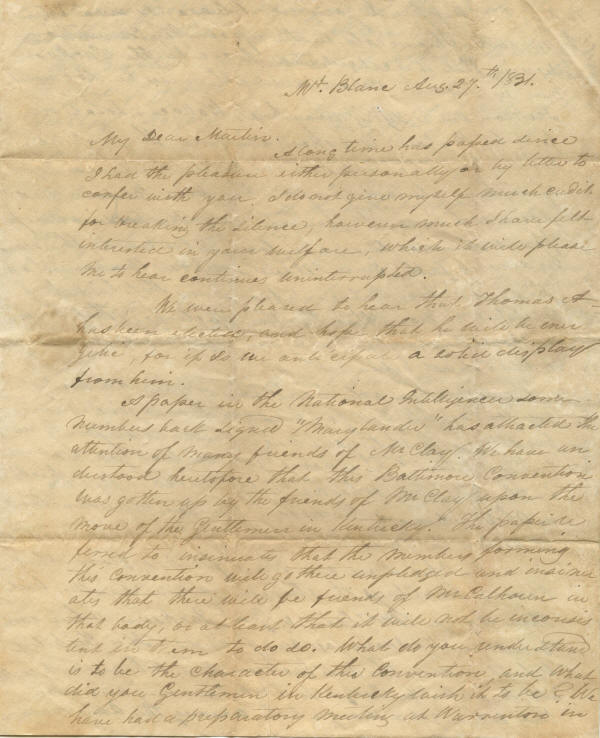 Mt. Blanc Aug. 27.th 1831.
My Dear Martin.
A long time has passed since
I had the pleasure either personally or by letter to
confer with you, I do not give myself much credit
for breaking the silence, however much I have felt
interested in your welfare, which it will please
me to hear continues uninterrupted.
We were pleased to hear that Thomas A-
has been elected, and hope that he will be ener
getic, for if so we anticipate a solid display
from him.
A paper in the National Intelligencer some
numbers back signed "Marylander" has attracted the
attention of many friends of Mr Clay. We have un
derstood heretofore that this Baltimore Convention
was gotten up by the friends of Mr Clay upon the
move of the Gentlemen in Kentucky. The paper re
ferred to insinuates that the members forming
this Convention will go there unpledged and insinu
ates that there will be friends of Mr Calhoun in
that body, or at least that it will not be inconsis
tent in them to do so. What do you understand
is to be the character of this Convention, and what
did you Gentlemen in Kentucky wish it to be? We
have had a preparatory meeting at Warrenton in